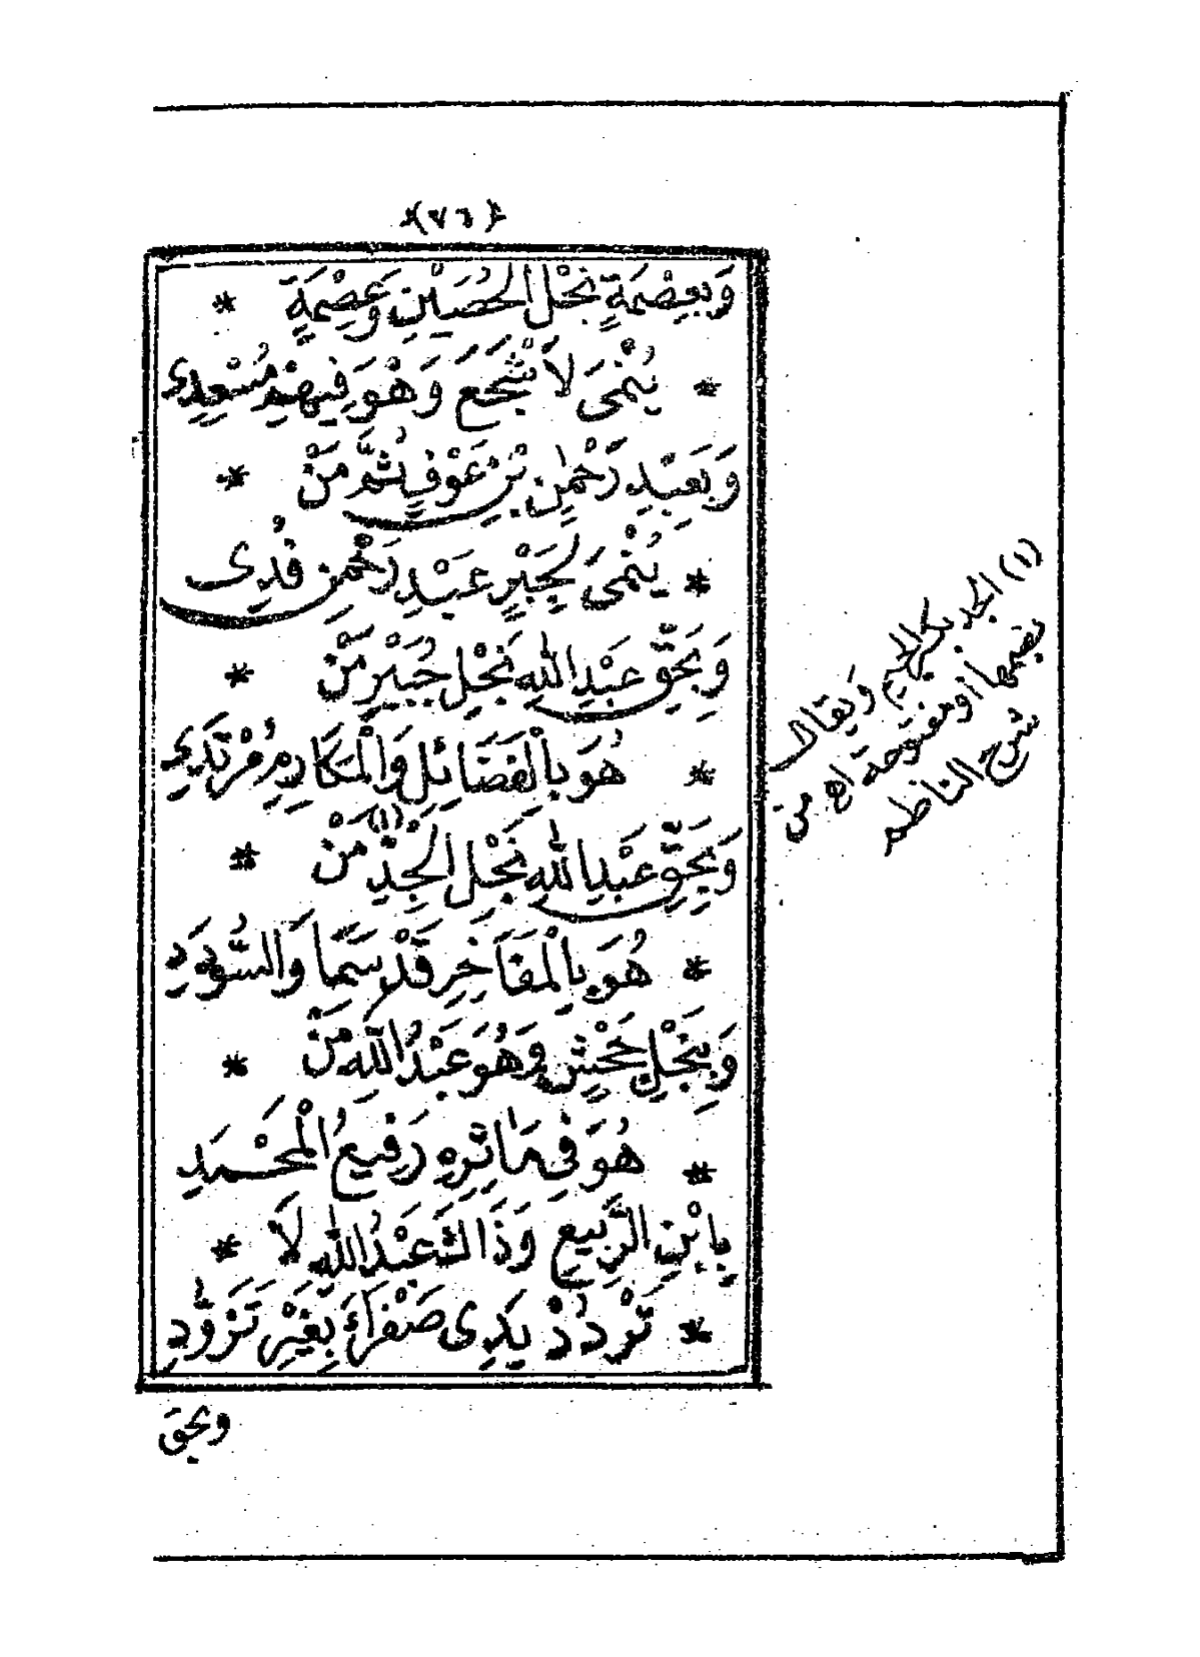 ﴿٧٦﴾
وَبِعِصْمَةٍ نَجْلِ الْحُصَيْنِ وَعِصْمَةٍ *
* يُنْمَى لَاشْجَعَ وَهْوَ فِيهِمْ مُسْعِدِى
وَبِعَبْدِ رَحْمٰنِ بْنِ عَوْفٍ ثُمَّ مَنْ *
* يُنْمَى لِجَبْرٍ عَبْدِ رَحْمٰنٍ قُدِى
وَبِحَقِّ عَبْدِ اللهِ نَجْلِ جُبَيْرٍ مَنْ *
* هُوَ بِالْفَضَائِلِ وَالْمَكَارِمِ مُرْتَدِى
وَبِحَقِّ عَبْدِ اللهِ نَجْلِ الْجِدِّ (١) مَنْ *
* هُوَ بِالْمَفَاخِرِ قَدْ سَمَا وَالسُّودَدِ
وَبِنَجْلِ جَحْشٍ وَهُوَ عَبْدُ اللهِ مَنْ *
* هُوَ فِى مَاٰثِرِهِ رَفِيعُ الْمَحْمَدِ
بِابْنِ الرَّبِيعِ وَذَاكَ عَبْدُ اللهِ لَا *
* تَرْدُدْ يَدِى صَفْرَاءَ بِغَيْرِ تَزَوُّدِ
وبحق
(١) الجد بكسر الجيم ويقال
بضمها أو مفتوحة اهـ من
شرح الناظم